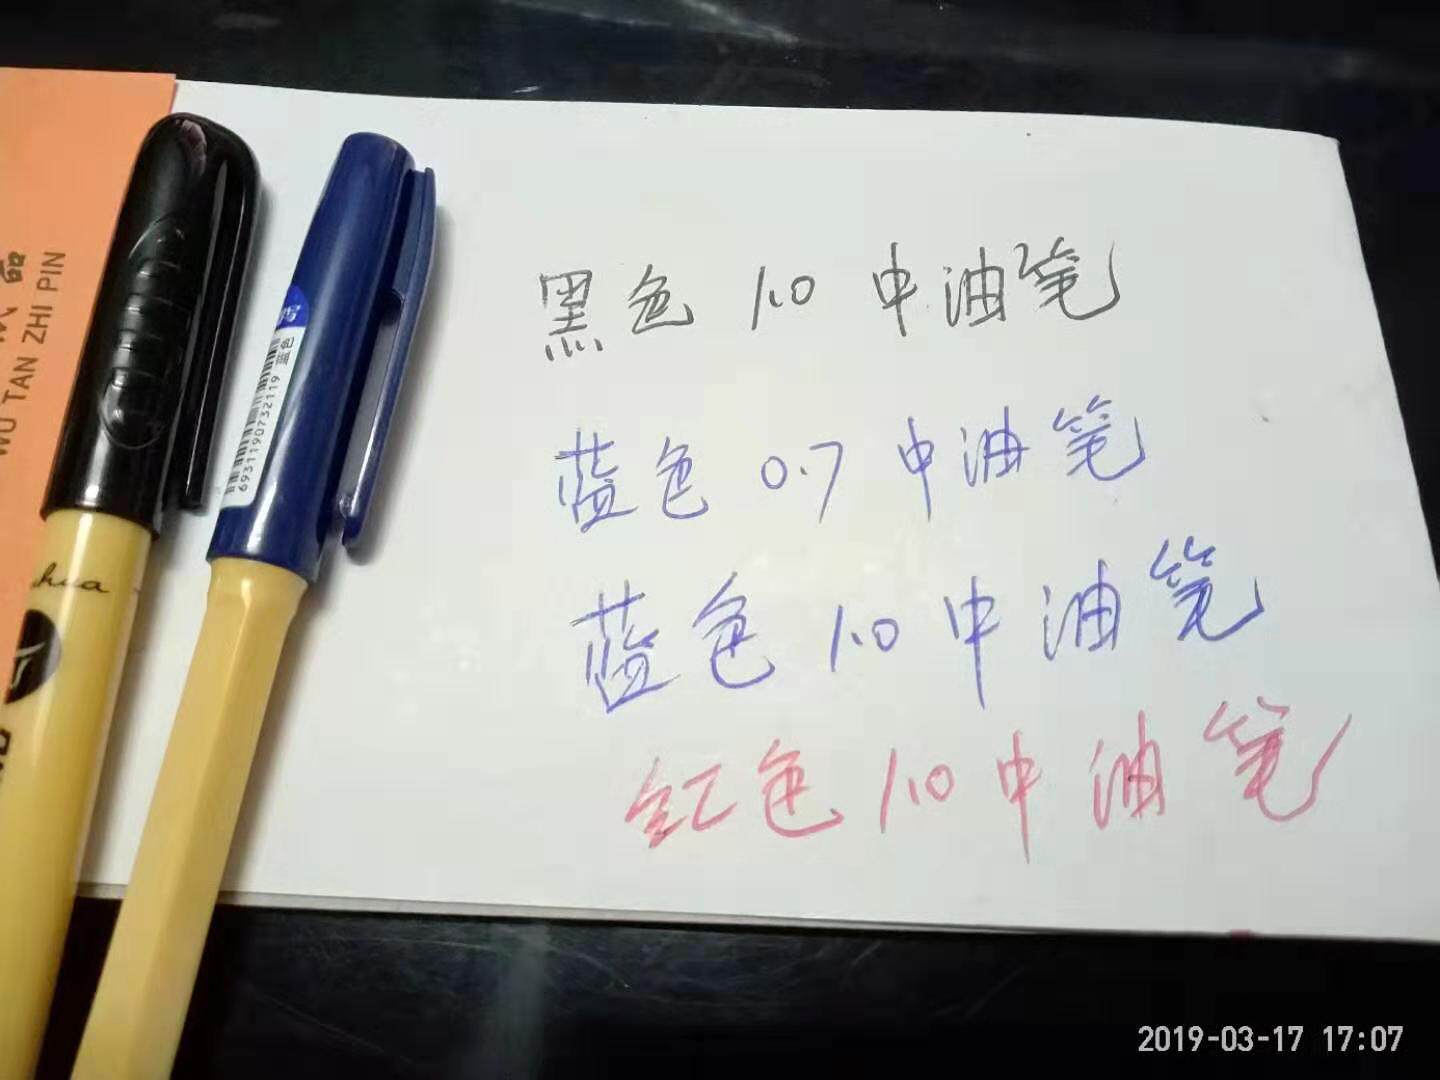 WU TAN ZHI PIN
6931190732119 蓝色
hua
黑色 1.0 中油笔
蓝色 0.7 中油笔
蓝色 1.0 中油笔
红色 1.0 中油笔
2019-03-17 17:07